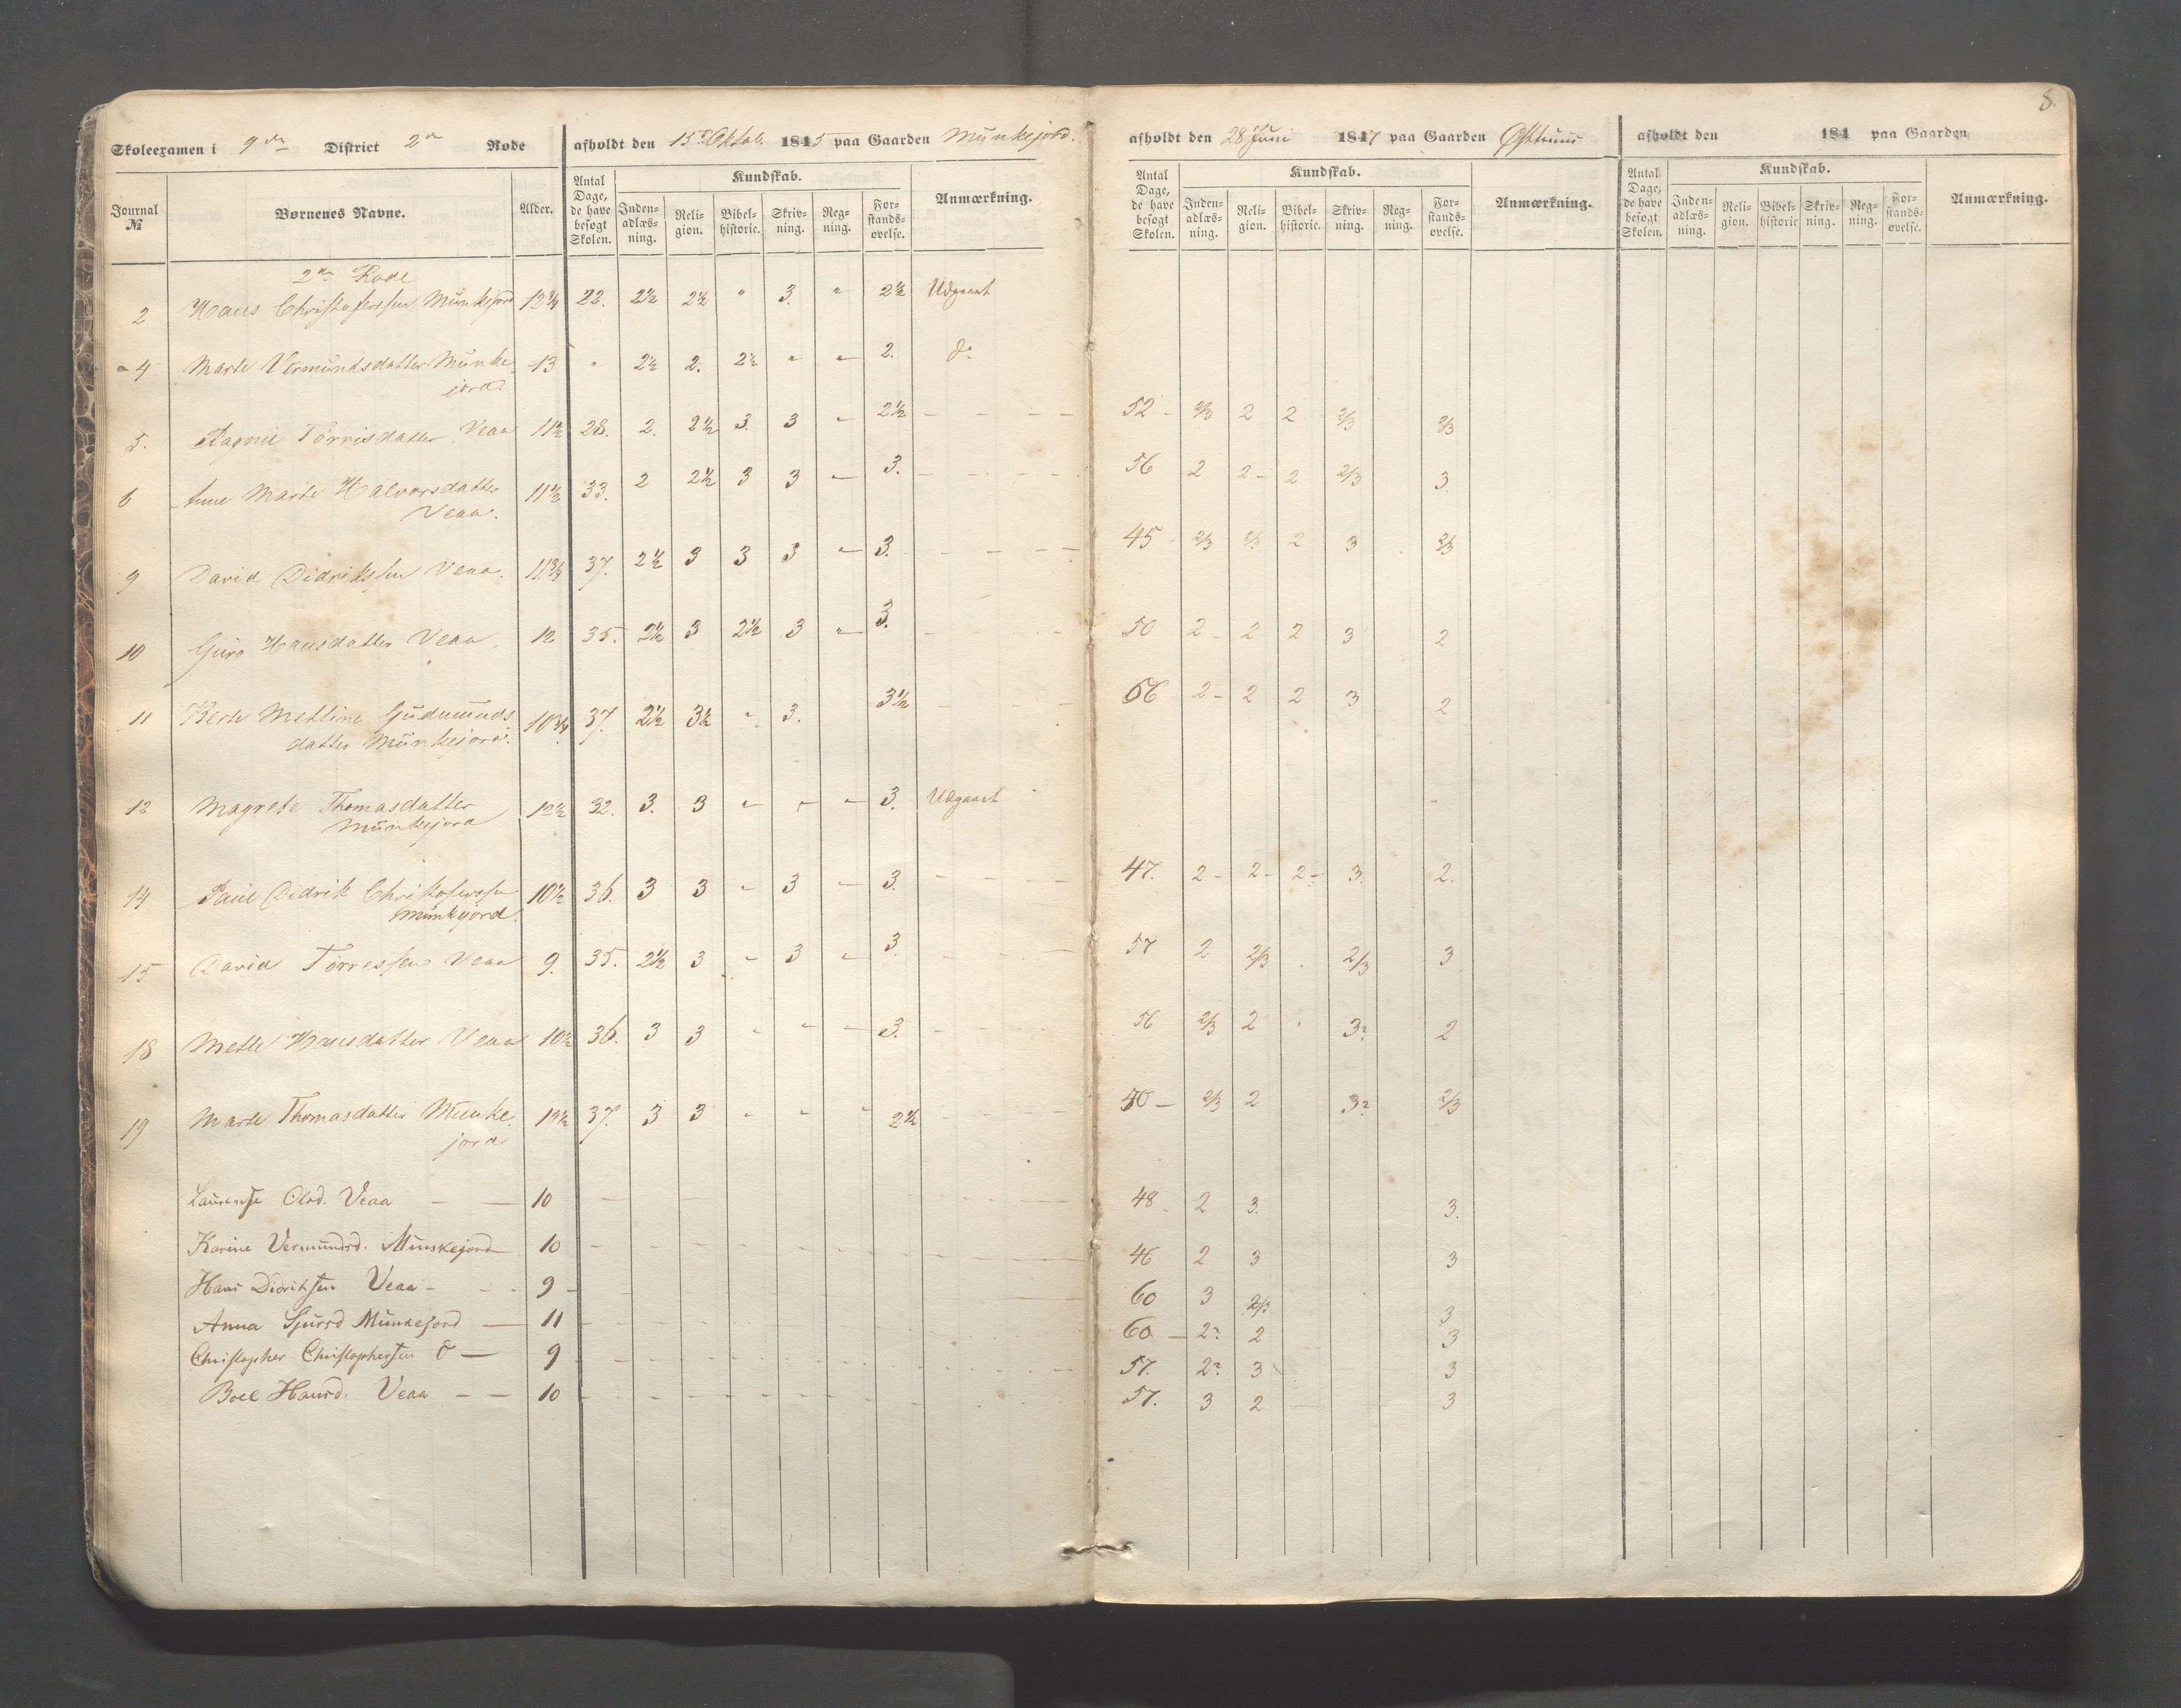 8.
Skoleexamen i 9de District 2de Rode afholdt den 15de Oktob. 1845 paa Gaarden Munkejord. afholdt den 28 Juni 1847 paa Gaarden afholdt den 184 paa Gaarden
Journal № Børnenes Navne. Alder. Antal Dage, de have besøgt Skolen. Kundskab. Inden-adlæs-ning. Reli-gion. Bibel-historie. Skriv-ning. Reg-ning. For-stands-øvelse. Anmærkning. Antal Dage, de have besøgt Skolen. Kundskab. Inden-adlæs-ning. Reli-gion. Bibel-historie. Skriv-ning. Reg-ning. For-stands-øvelse. Anmærkning. Antal Dage, de have besøgt Skolen. Kundskab. Inden-adlæs-ning. Reli-gion. Bibel-historie Skriv-ning. Reg-ning. For-stands-øvelse. Anmærkning.
2de Rode
2 Hans Christofersen Munkejord 12 3/4 22. 2½ 2½ " 3. " 2½ Udgaaet
4 Marte Vermundsdatter Munke- 13 " 2½ 2. 2½ " " 2. do
jord.
5. Ragnil Tørrisdatter Veaa 11½ 28. 2. 2½ 3. 3 " 2½ — — — — 52 - 2/3 2 2 2/3 2/3
6 Anne Marte Halvorsdatter 11½ 33. 2 2½ 3 3 — 3. — — — — 56 2 2 - 2 2/3 3.
Veaa.
9 David Didriksen Veaa. 11 3/4 37. 2½ 3 3 3 — 3. — — — — 45 - 2/3 2/3 2 3 2/3
10 Guro Hansdatter Veaa. 12 35. 2½ 3 2½ 3 " 3. — — — — 50 2 - 2 2 3 2
11 Berte Metline Gudmunds 10 3/4 37. 2½ 3½ " 3. 3½ — — — — 56 2 - 2 2 3 2
datter Munkejord.
12 Magrete Thomasdatter 12½ 32. 3. 3 " " " 3. Udgaaet
Munkejord
14 Paul Didrik Christofersen 10½ 36. 3 3 " 3 — 3. — — — — 47. 2 - 2 - 2 - 3. 2.
Munkejord.
15 David Tørressen Veaa 9. 35. 2½ 3 " 3 " 3 — — — — 57 2 2/3 . 2/3 3
18 Mette Hansdatter Veaa 10½ 36. 3 3 " " — 3. — — — — 56 2/3 2 . 3? 2
19 Marte Thomasdatter Munke- 10½ 37. 3 3 " " " 2½ — — — — 50 — 2/3 2 3? 2/3
jord
Laurentse Olsd. Veaa — — 10 — 48 - 2 3. 3.
Karine Vermundsd. Munkejord 10 — 46 2 3 3
Hans Didriksen Veaa - - - 9 — 60 3 2/3 3
Anna Sjursd Munkejord — 11 — 60 — 2? 2 3
Christopher Christophersen do — 9 — 57. 2? 3 3
Boel Hansd. Veaa — — 10 — 57. 3 2 3